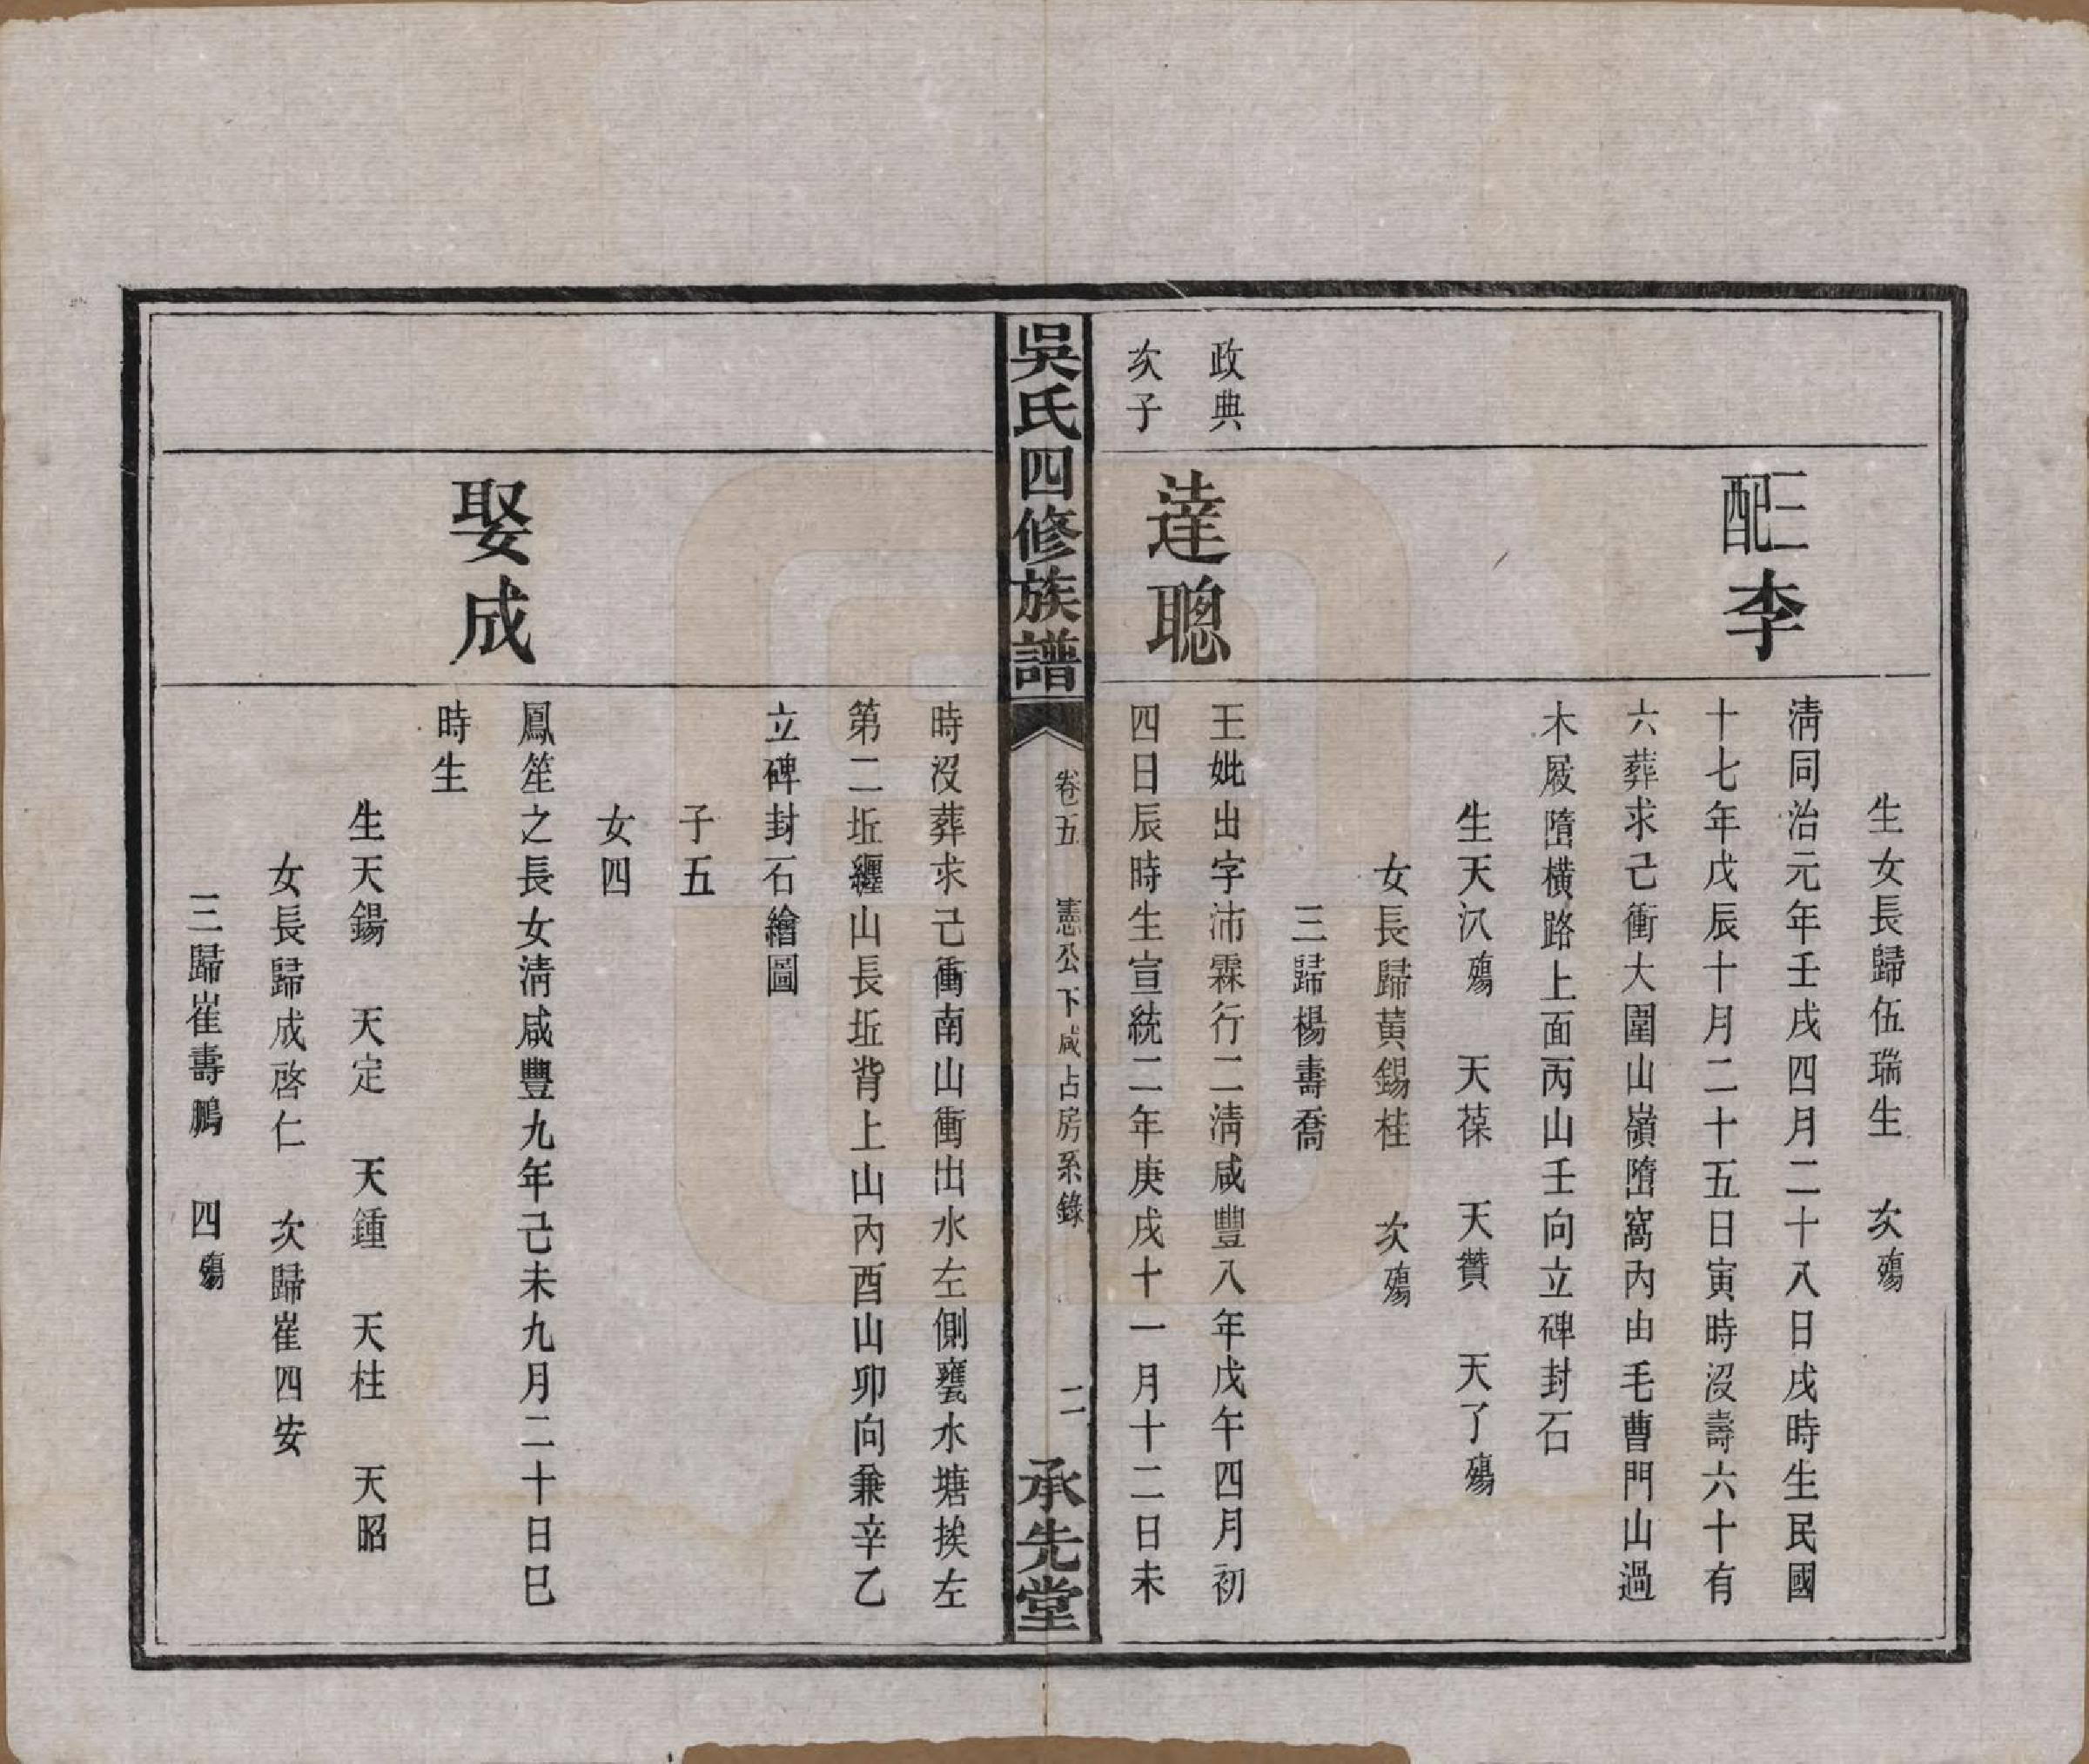 生女長歸伍瑞生　次殤
三配李
清同治元年壬戌四月二十八日戌時生民國
十七年戊辰十月二十五日寅時沒壽六十有
六葬求己衝大圍山嶺墮窩內由毛曹門山過
木屐墮橫路上面丙山壬向立碑封石
生天汃殤　天葆　天贊　天了殤
女長歸黃錫桂　次殤
三歸楊壽喬
政典
次子
達聰
王妣出字沛霖行二清咸豐八年戊午四月初
四日辰時生宣統二年庚戌十一月十二日未
吳氏四修族譜
卷五　憲公下咸占房系錄
二
承先堂
時沒葬求己衝南山衝出水左側甕水塘挨左
第二坵纏山長坵背上山內酉山卯向兼辛乙
立碑封石繪圖
子五
女四
娶成
鳳笙之長女清咸豐九年己未九月二十日巳
時生
生天錫　天定　天鍾　天柱　天昭
女長歸成啓仁　次歸崔四安
三歸崔壽鵬　四殤